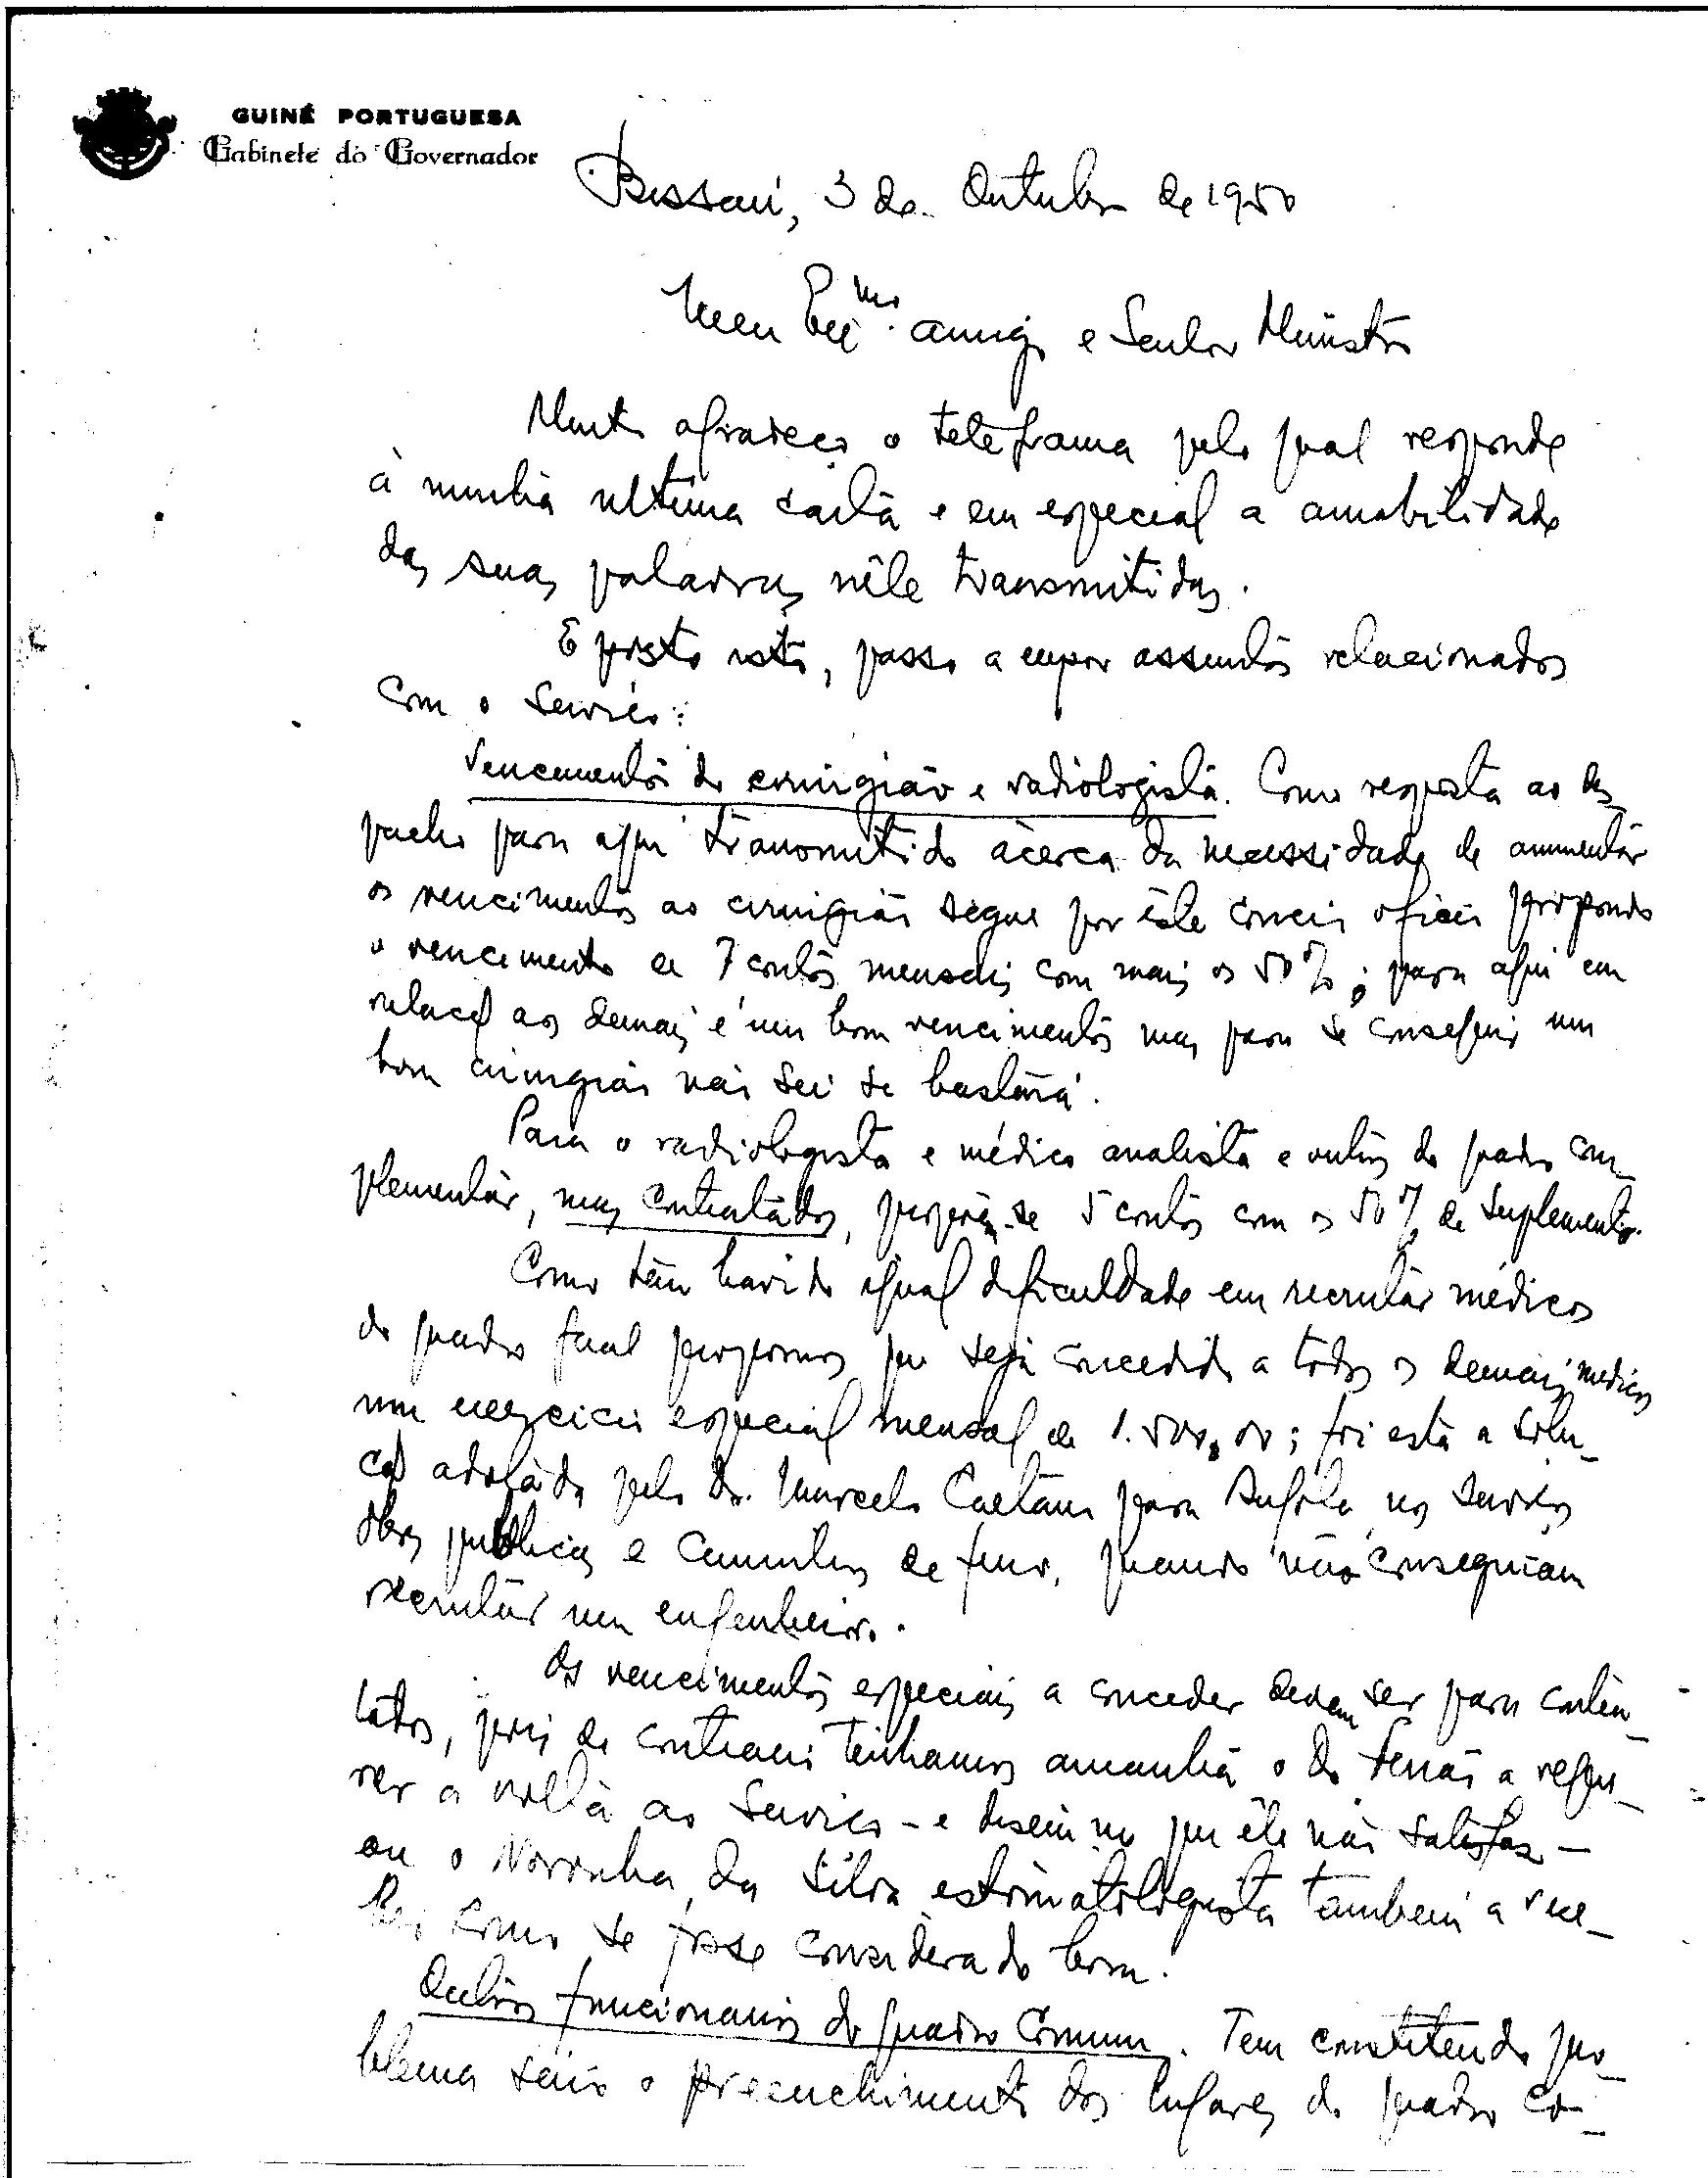 GUINÉ PORTUGUESA
Gabinete do Governador
Bissau, 3 de Outubro de 1950
Meu Exmo. amigo e Senhor Ministro
Muito agradeço o telegrama pelo qual responde
à minha ultima carta e em especial a amabilidade
das suas palavras nêle transmitidas.
E posto isto, passo a expor assuntos relacionados
com o serviço:
Vencimentos do cirurgião e radiologista. Como resposta ao des-
pacho para aqui transmitido àcerca da necessidade de aumentar
os vencimentos ao cirurgião segue por êste correio oficio propondo
o vencimento de 7 contos mensais com mais os 50%; para aqui em
relação aos demais é um bom vencimento mas para se conseguir um
bom cirurgião não sei se bastará.
Para o radiologista e médico analista e outros do quadro com-
plementar, mas contratados, propõe-se 5 contos com os 50% de suplemento.
Como tem havido igual dificuldade em recrutar médicos
do quadro geral propomos que seja concedido a todos os demais médicos
um exercicio especial mensal de 1.500,00; foi esta a solu-
ção adotada pelo Dr. Marcelo Caetano para Angola nos serviços
obras publicas e Caminhos de ferro, quando não conseguiam
recrutar um engenheiro.
Os vencimentos especiais a conceder devem ser para contra-
tados, pois de contrario tenhamos amanhã o Dr. Ferrão a reque-
rer a volta ao serviço - e dizem me que êle não satisfaz -
ou o Noronha da Silva estomatologista tambem a rece-
ber como se fosse considerado bom.
Outros funcionarios do quadro Comum. Tem constituido pro-
blema sério o preenchimento dos lugares do quadro co-